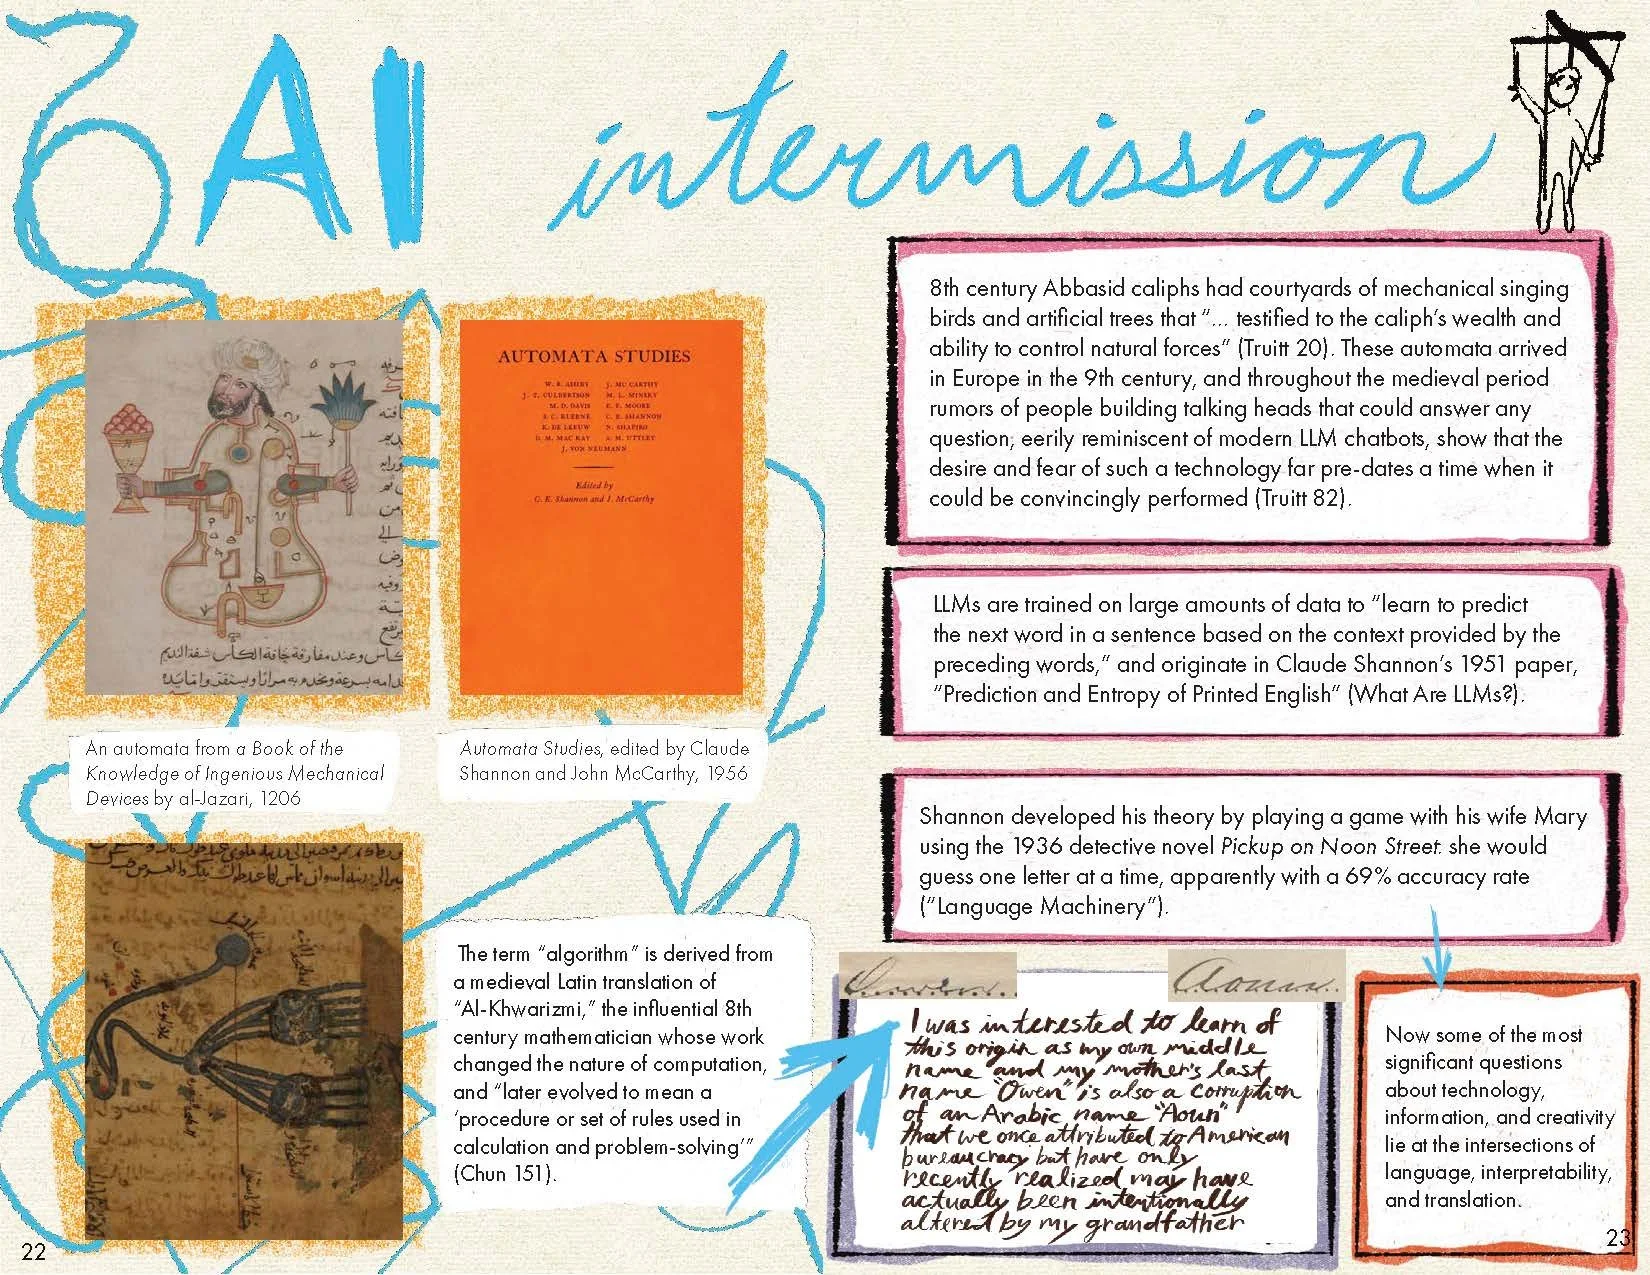 AI intermission
AUTOMATA STUDIES
W. R. ASHBY J. MC CARTHY
J. T. CULBERTSON M. L. MINSKY
M. D. DAVIS E. F. MOORE
S. C. KLEENE C. E. SHANNON
K. DE LEEUW N. SHAPIRO
D. M. MAC KAY A. M. UTTLEY
J. VON NEUMANN
Edited by
C. E. Shannon and J. McCarthy
An automata from a Book of the
Knowledge of Ingenious Mechanical
Devices by al-Jazari, 1206
Automata Studies, edited by Claude
Shannon and John McCarthy, 1956
The term “algorithm” is derived from
a medieval Latin translation of
“Al-Khwarizmi,” the influential 8th
century mathematician whose work
changed the nature of computation,
and “later evolved to mean a
‘procedure or set of rules used in
calculation and problem-solving’”
(Chun 151).
22
8th century Abbasid caliphs had courtyards of mechanical singing
birds and artificial trees that “... testified to the caliph’s wealth and
ability to control natural forces” (Truitt 20). These automata arrived
in Europe in the 9th century, and throughout the medieval period
rumors of people building talking heads that could answer any
question, eerily reminiscent of modern LLM chatbots, show that the
desire and fear of such a technology far pre-dates a time when it
could be convincingly performed (Truitt 82).
LLMs are trained on large amounts of data to “learn to predict
the next word in a sentence based on the context provided by the
preceding words,” and originate in Claude Shannon’s 1951 paper,
“Prediction and Entropy of Printed English” (What Are LLMs?).
Shannon developed his theory by playing a game with his wife Mary
using the 1936 detective novel Pickup on Noon Street: she would
guess one letter at a time, apparently with a 69% accuracy rate
(“Language Machinery”).
I was interested to learn of
this origin as my own middle
name and my mother's last
name "Owen" is also a corruption
of an Arabic name "Aoun"
that we once attributed to American
bureaucracy but have only
recently realized may have
actually been intentionally
altered by my grandfather
Now some of the most
significant questions
about technology,
information, and creativity
lie at the intersections of
language, interpretability,
and translation.
23